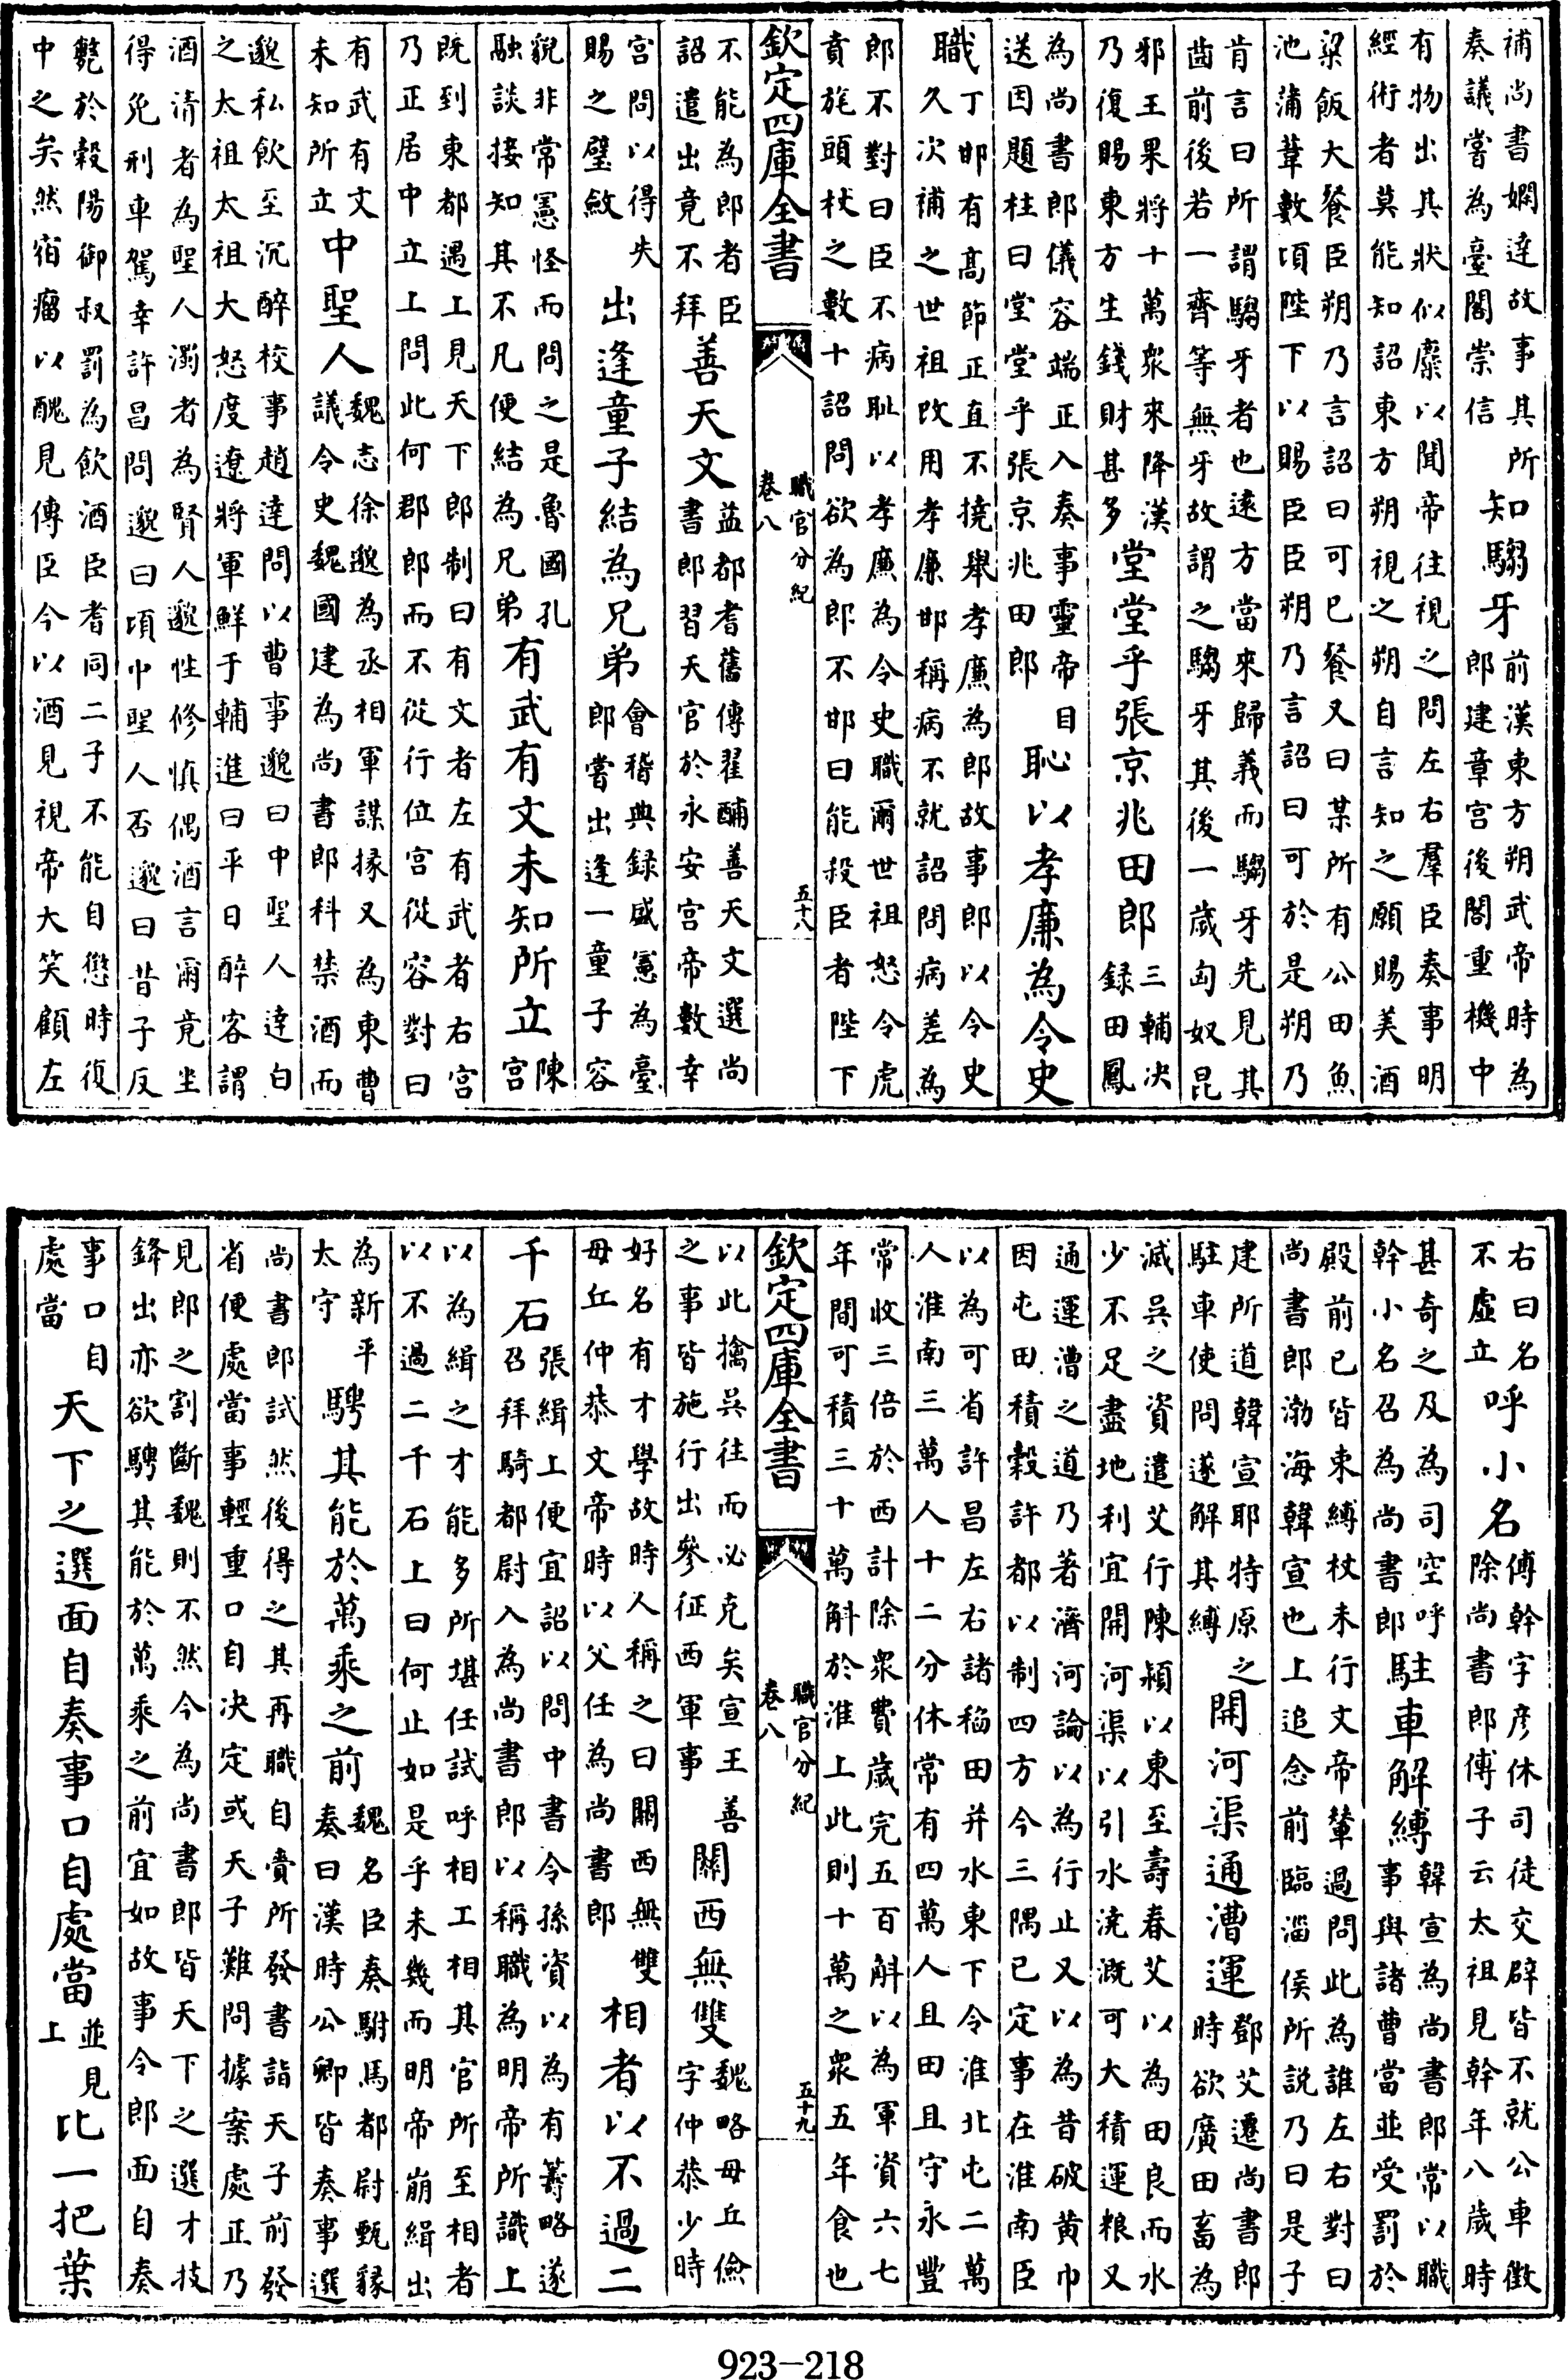 補尚書嫻達故事其所
奏議嘗為臺閣崇信
知騶牙
前漢東方朔武帝時為
郎建章宫後閣重機中
有物出其狀似麋以聞帝往視之問左右羣臣奏事明
經術者莫能知詔東方朔視之朔自言知之願賜美酒
粱飯大餐臣朔乃言詔曰可已餐又曰某所有公田魚
池蒲葦數頃陛下以賜臣臣朔乃言詔曰可於是朔乃
肯言曰所謂騶牙者也逺方當來歸義而騶牙先見其
齒前後若一齊等無牙故謂之騶牙其後一歲匈奴昆
邪王果將十萬衆來降漢
乃復賜東方生錢財甚多
堂堂乎張京兆田郎
三輔决
録田鳳
為尚書郎儀容端正入奏事靈帝目
送因題柱曰堂堂乎張京兆田郎
恥以孝廉為令史
職丁邯有髙節正直不撓舉孝廉為郎故事郎以令史
久次補之世祖改用孝廉邯稱病不就詔問病差為
郎不對曰臣不病恥以孝廉為令史職爾世祖怒令虎
賁旄頭杖之數十詔問欲為郎不邯曰能殺臣者陛下
欽定四庫全書
職官分紀
卷八
五十八
不能為郎者臣
詔遣出竟不拜
善天文
益都耆舊傳翟酺善天文選尚
書郎習天官於永安宫帝數幸
宫問以得失
賜之璧敇
出逢童子結為兄弟
會稽典録盛憲為臺
郎嘗出逢一童子容
貌非常憲怪而問之是魯國孔
融談接知其不凡便結為兄弟
有武有文未知所立
陳
宫
既到東都遇上見天下郎制曰有文者左有武者右宫
乃正居中立上問此何郡郎而不從行位宫從容對曰
有武有文
未知所立
中聖人
魏志徐邈為丞相軍謀掾又為東曹
議令史魏國建為尚書郎科禁酒而
邈私飲至沉醉校事趙達問以曹事邈曰中聖人達白
之太祖太祖大怒度遼將軍鮮于輔進曰平日醉客謂
酒清者為聖人濁者為賢人邈性修慎偶酒言爾竟坐
得免刑車駕幸許昌問邈曰頃中聖人否邈曰昔子反
斃於穀陽御叔罰為飲酒臣耆同二子不能自懲時復
中之矣然宿瘤以醜見傳臣今以酒見視帝大笑顧左
右曰名
不虚立
呼小名
傅幹字彦休司徒交辟皆不就公車徵
除尚書郎傅子云太祖見幹年八歲時
甚奇之及為司空呼
幹小名召為尚書郎
駐車解縛
韓宣為尚書郎常以職
事與諸曹當並受罰於
殿前已皆束縛杖未行文帝輦過問此為誰左右對曰
尚書郎渤海韓宣也上追念前臨淄侯所説乃曰是子
建所道韓宣耶特原之
駐車使問遂解其縛
開河渠通漕運
鄧艾遷尚書郎
時欲廣田畜為
滅吳之資遣艾行陳潁以東至壽春艾以為田良而水
少不足盡地利宜開河渠以引水澆溉可大積運粮又
通運漕之道乃著濟河論以為行止又以為昔破黄巾
因屯田積穀許都以制四方今三隅已定事在淮南臣
以為可省許昌左右諸稻田并水東下令淮北屯二萬
人淮南三萬人十二分休常有四萬人且田且守永豐
常收三倍於西計除衆費歲完五百斛以為軍資六七
年間可積三十萬斛於淮上此則十萬之衆五年食也
欽定四庫全書
職官分紀
卷八
五十九
以此擒吳往而必克矣宣王善
之事皆施行出參征西軍事
關西無雙
魏略母丘儉
字仲恭少時
好名有才學故時人稱之曰關西無雙
母丘仲恭文帝時以父任為尚書郎
相者以不過二
千石
張緝上便宜詔以問中書令孫資以為有籌略遂
召拜騎都尉入為尚書郎以稱職為明帝所識上
以為緝之才能多所堪任試呼相工相其官所至相者
以不過二千石上曰何止如是乎未幾而明帝崩緝出
為新平
太守
騁其能於萬乘之前
魏名臣奏駙馬都尉甄豩
奏曰漢時公卿皆奏事選
尚書郎試然後得之其再職自賫所發書詣天子前發
省便處當事輕重口自决定或天子難問據案處正乃
見郎之割斷魏則不然今為尚書郎皆天下之選才技
鋒出亦欲騁其能於萬乘之前宜如故事令郎面自奏
事口自
處當
天下之選面自奏事口自處當
並見
上
比一把葉
923—218